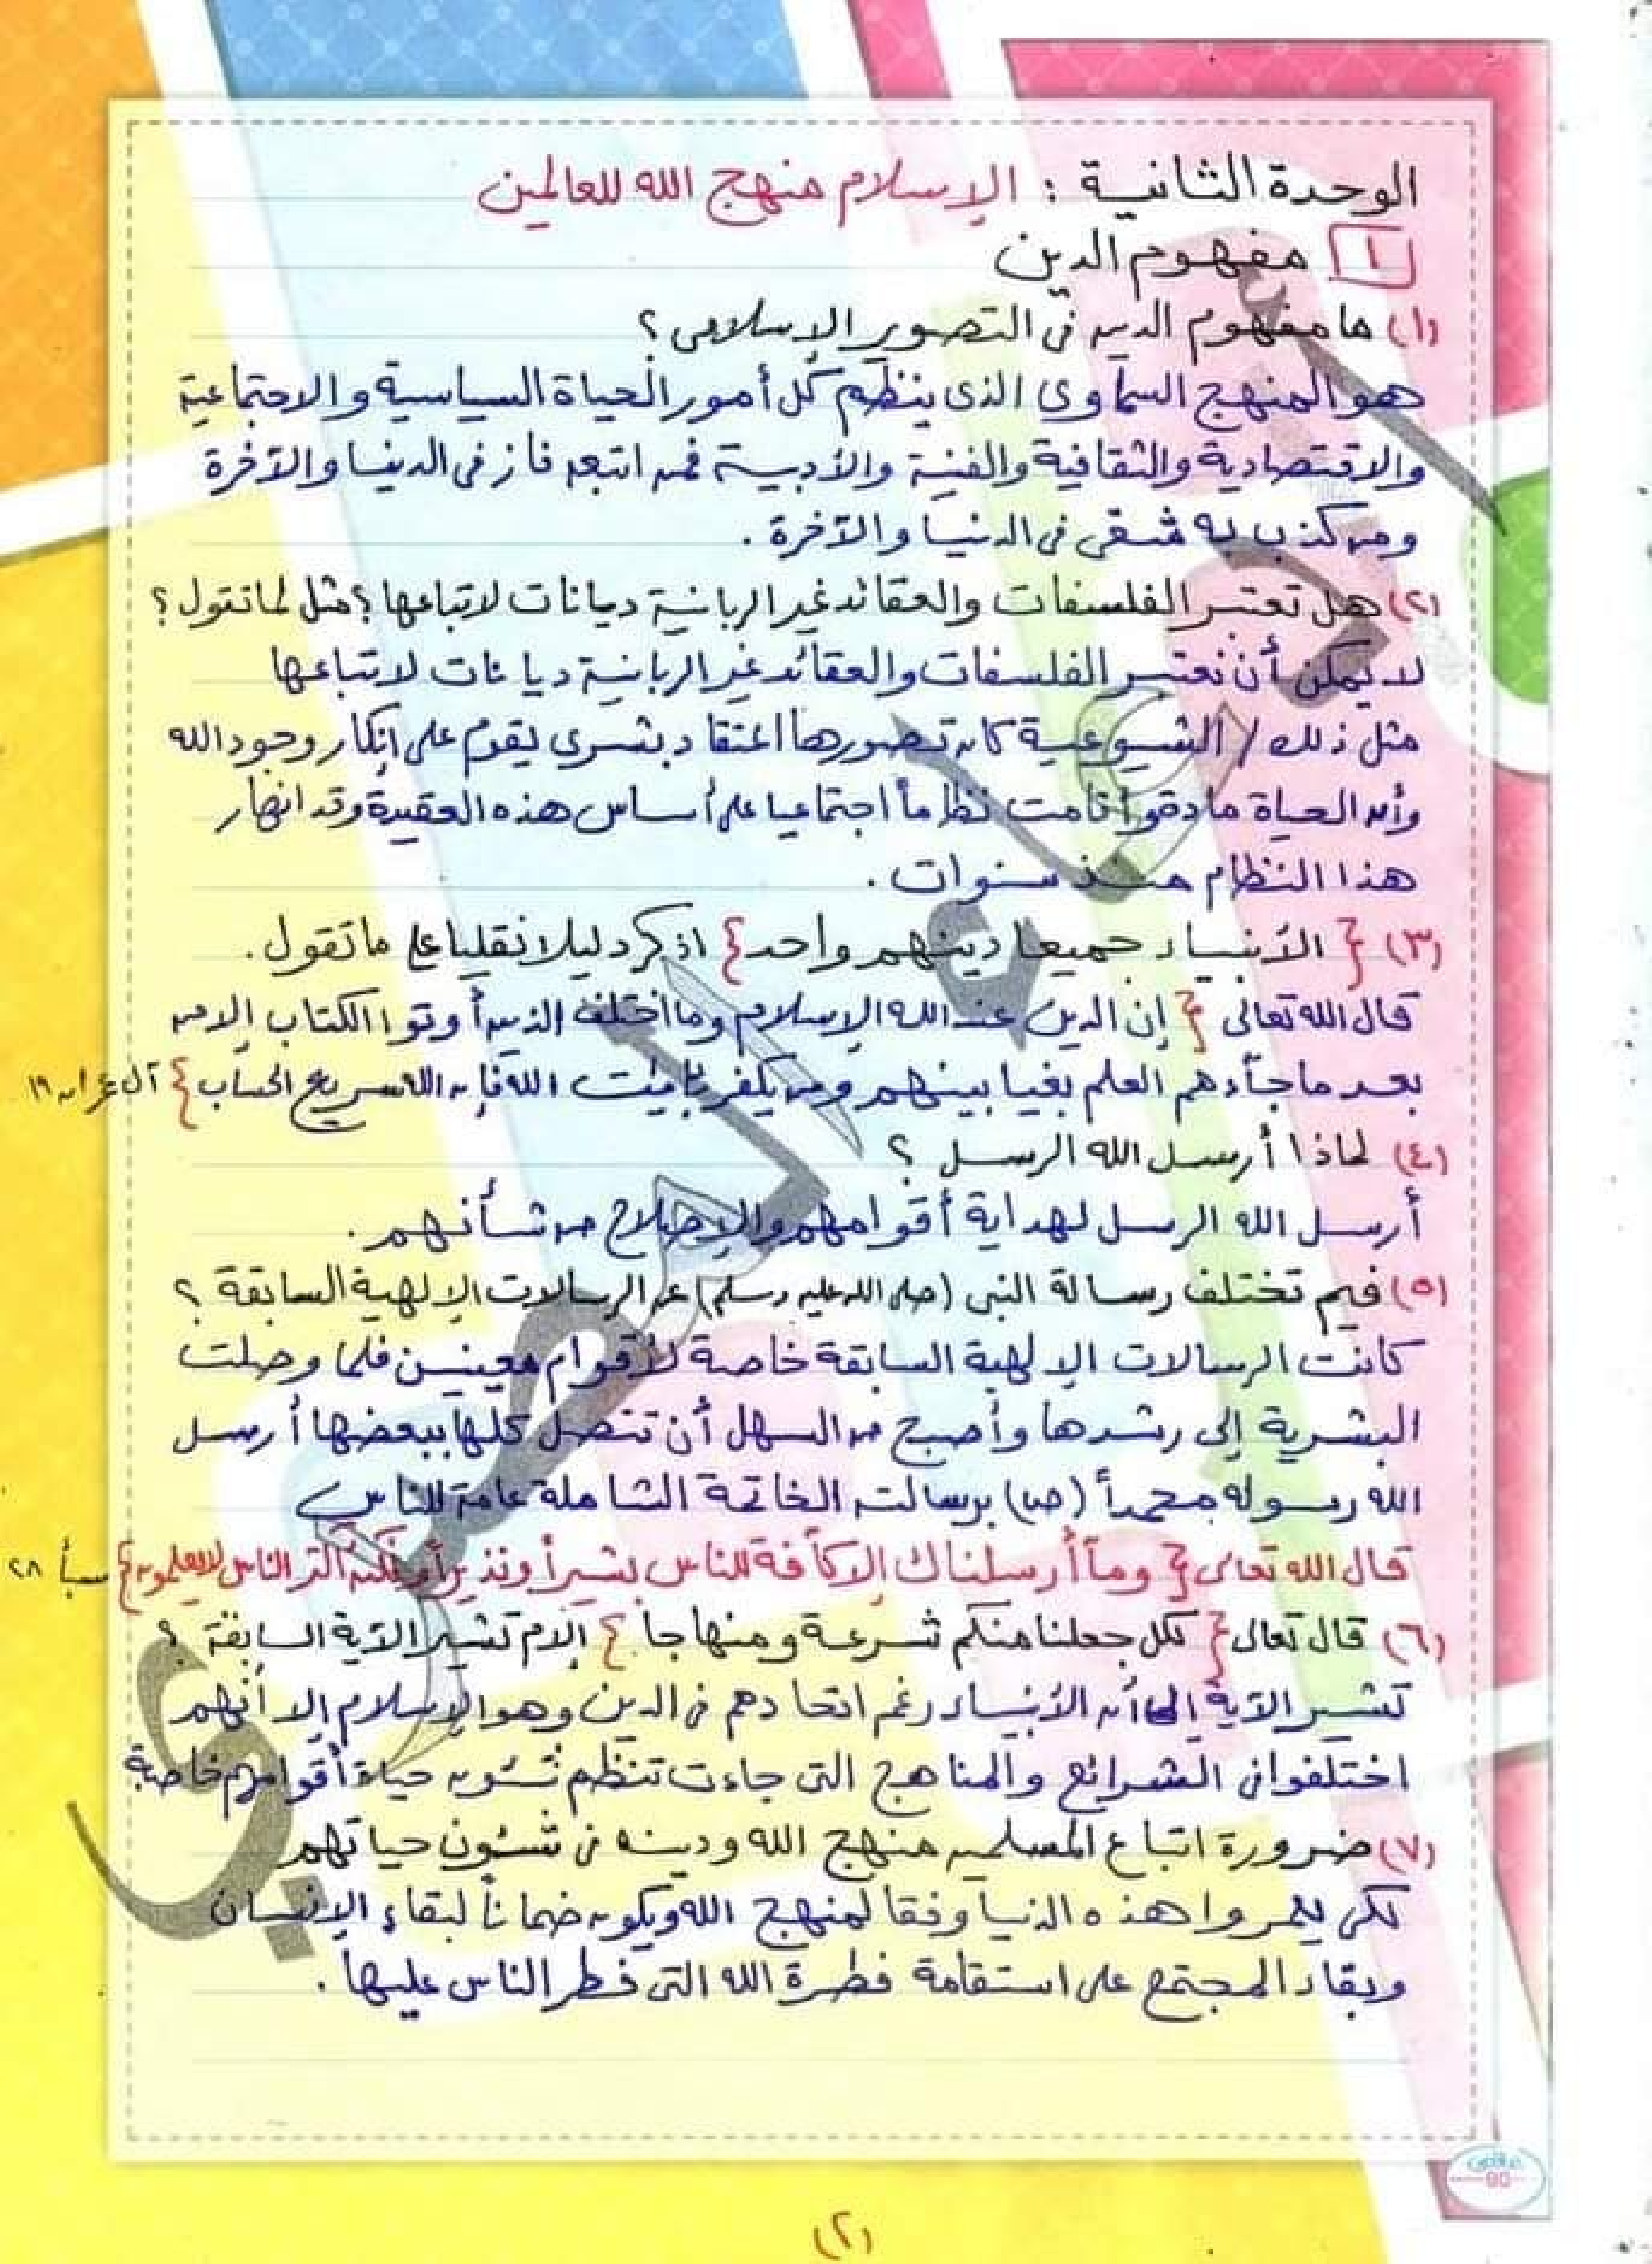 الوحدة الثانية : الإسلام منهج الله للعالمين
١ مفهوم الدين
(١) ما مفهوم الدين في التصور الإسلامي ؟
هو المنهج السماوي الذي ينظم كل أمور الحياة السياسية والاجتماعية
والاقتصادية والثقافية والفنية والأدبية فمن اتبعه فاز في الدنيا والآخرة
ومن كذب به شقى في الدنيا والآخرة .
(٢) هل تعتبر الفلسفات والعقائد غير الربانية ديانات لاتباعها ؟ مثل لما تقول ؟
لا يمكن أن نعتبر الفلسفات والعقائد غير الربانية ديانات لاتباعها
مثل ذلك / الشيوعية كان تصورها اعتقاد بشرى يقوم على إنكار وجود الله
وأن الحياة مادة وأقامت نظاماً اجتماعيا على أساس هذه العقيدة وقد انهار
هذا النظام منذ سنوات .
(٣) { الأنبياء جميعا دينهم واحد } اذكر دليلا نقليا على ما تقول .
قال الله تعالى { إن الدين عند الله الإسلام وما اختلف الذين أوتوا الكتاب إلا من
بعد ما جآءهم العلم بغيا بينهم ومن يكفر بآيت الله فإن الله سريع الحساب } آل عمران ١٩
(٤) لماذا أرسل الله الرسل ؟
أرسل الله الرسل لهداية أقوامهم والإصلاح من شأنهم .
(٥) فيم تختلف رسالة النبي (صلى الله عليه وسلم) عن الرسالات الإلهية السابقة ؟
كانت الرسالات الإلهية السابقة خاصة لأقوام معينين فلما وصلت
البشرية إلى رشدها وأصبح من السهل أن تتصل كلها ببعضها أرسل
الله رسوله محمداً (ص) برسالته الخاتمة الشاملة عامة للناس
قال الله تعالى { ومآ أرسلناك إلا كآفة للناس بشيراً ونذيراً ولكن أكثر الناس لا يعلمون } سبأ ٢٨
(٦) قال تعالى { لكل جعلنا منكم شرعة ومنهاجا } إلام تشير الآية السابقة ؟
تشير الآية إلى أن الأنبياء رغم اتحادهم في الدين وهو الإسلام إلا أنهم
اختلفوا في الشرائع والمناهج التي جاءت تنظم شئون حياة أقوامهم خاصة
(٧) ضرورة اتباع المسلمين منهج الله ودينه في شئون حياتهم
لكي يعمروا هذه الدنيا وفقا لمنهج الله ويكون ضماناً لبقاء الإنسان
وبقاء المجتمع على استقامة فطرة الله التي فطر الناس عليها .
(٢)